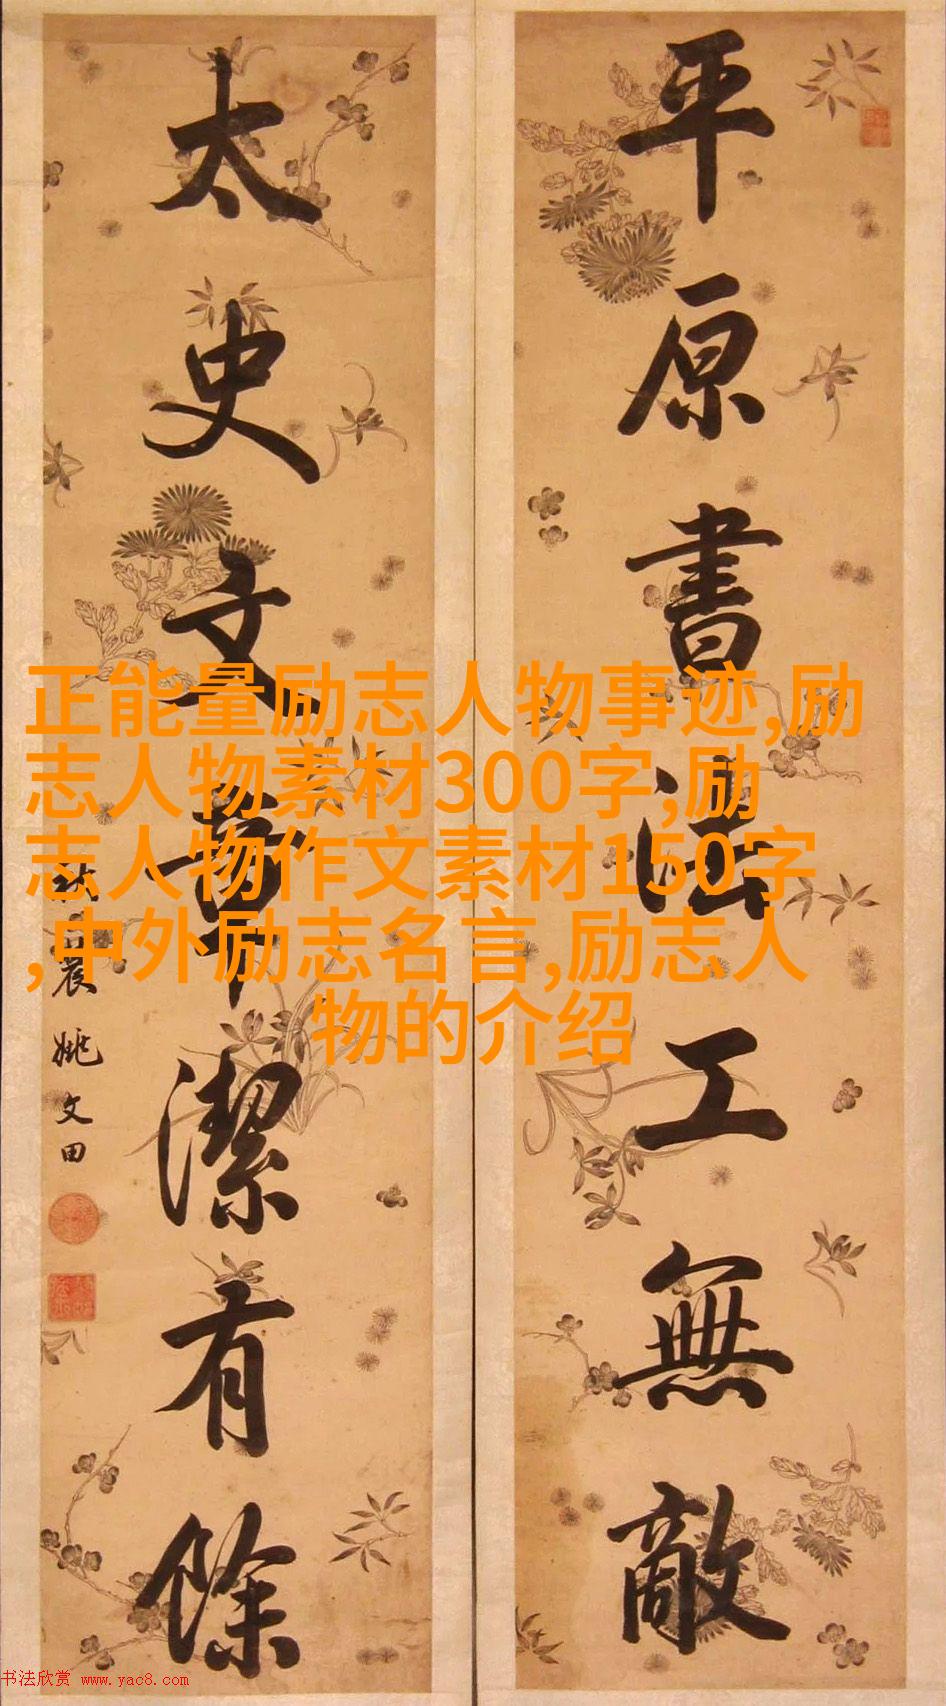 平原書法工無敵
太史文章潔有餘
秋農姚文田
正能量励志人物事迹,励
志人物素材300字,励
志人物作文素材150字
,中外励志名言,励志人
物的介绍
书法欣赏 www.yac8.com